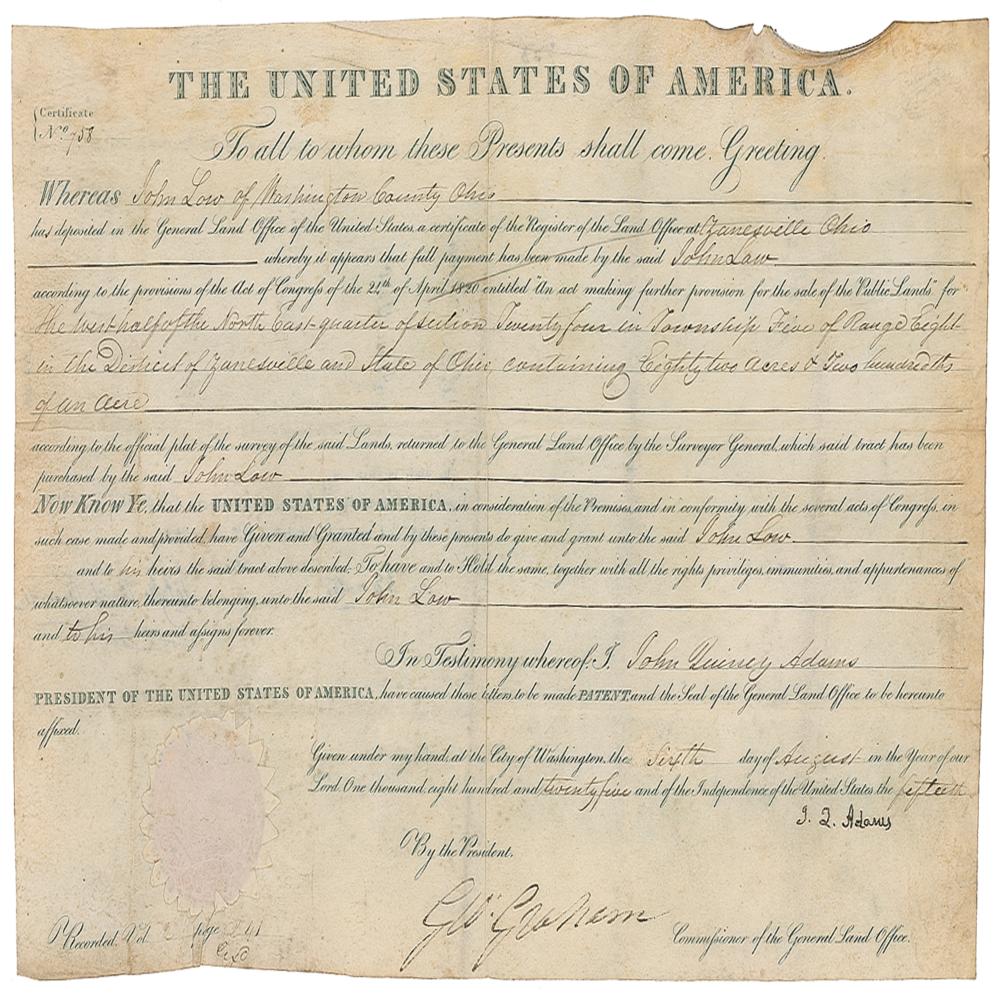 THE UNITED STATES OF AMERICA.
Certificate
No. 758
To all to whom these Presents shall come, Greeting.
Whereas John Low of Washington County Ohio
has deposited in the General Land Office of the United States, a certificate of the Register of the Land Office at Zanesville Ohio
whereby it appears that full payment has been made by the said John Low
according to the provisions of the Act of Congress of the 24th of April 1820 entitled "An act making further provision for the sale of the Public Lands" for
the West half of the North East quarter of section Twenty four in Township Five of Range Eight
in the District of Zanesville and State of Ohio, containing Eighty two acres & Two hundredths
of an acre
according to the official plat of the survey of the said Lands, returned to the General Land Office by the Surveyor General, which said tract has been
purchased by the said John Low
Now Know Ye, that the UNITED STATES OF AMERICA, in consideration of the Premises, and in conformity with the several acts of Congress, in
such case made and provided, have Given and Granted and by these presents do give and grant unto the said John Low
and to his heirs the said tract above described: To have and to Hold the same, together with all the rights, privileges, immunities, and appurtenances of
whatsoever nature, thereunto belonging, unto the said John Low
and to his heirs and assigns forever.
In Testimony whereof, I, John Quincy Adams
PRESIDENT OF THE UNITED STATES OF AMERICA, have caused these letters to be made PATENT, and the Seal of the General Land Office to be hereunto
affixed.
Given under my hand, at the City of Washington, the sixth day of August in the Year of our
Lord One thousand eight hundred and twenty five and of the Independence of the United States the fiftieth
J. Q. Adams
By the President.
Geo. Graham
Commissioner of the General Land Office.
Recorded, Vol. page